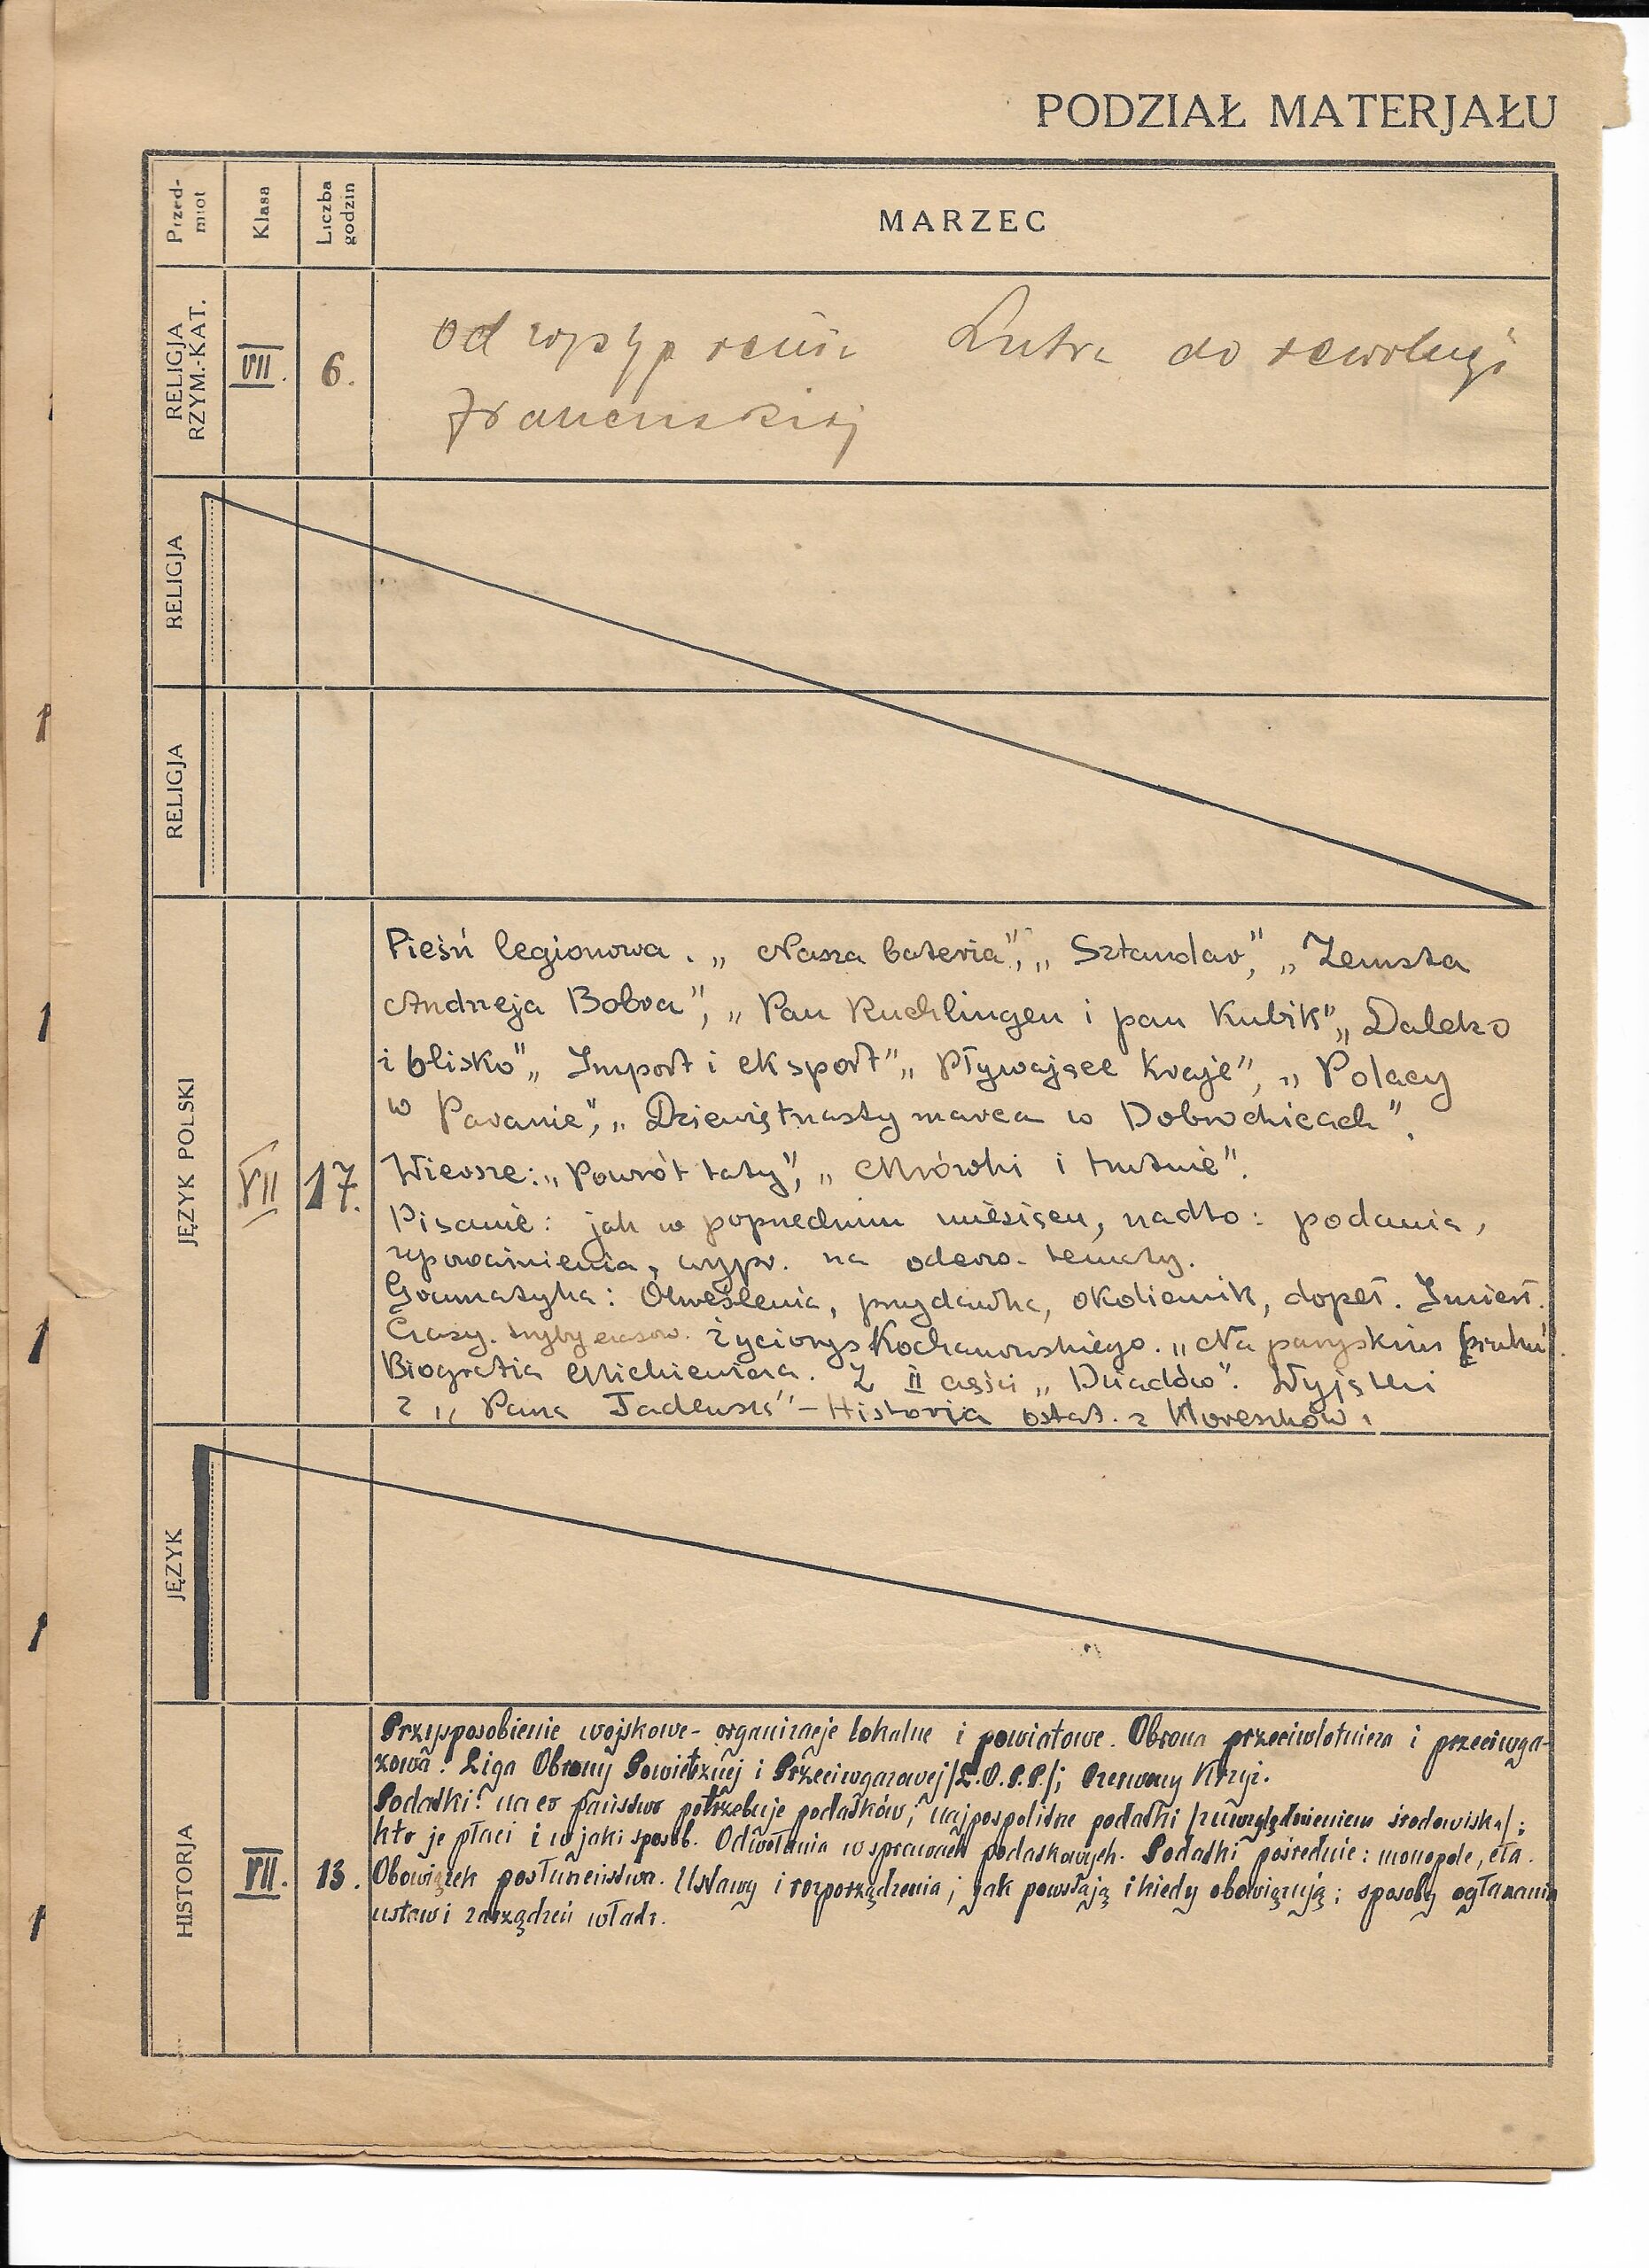 PODZIAŁ MATERJAŁU
Przed-
miot
Klasa
Liczba
godzin
MARZEC
RELIGJA
RZYM.-KAT.
VII.
6.
Od wystąpienia Lutra do rewolucji
francuskiej
RELIGJA
RELIGJA
JĘZYK POLSKI
VII
17.
Pieśń legionowa. „Nasza bateria", „Sztandar", „Zemsta
Andrzeja Bobra", „Pan Ruchlingen i pan Kubik" „Daleko
i blisko" „Import i eksport" „Pływające kraje", „Polacy
w Paranie", „Dziewiętnasty marca w Dobrochicach".
Wiersze: „Powrót taty", „Mrówki i trutnie".
Pisanie: jak w poprzednim miesiącu, nadto: podania,
upoważnienia, wypr. na oderw. tematy.
Gramatyka: Określenia, przydawka, okolicznik, dopeł. Imiesł.
Czasy. tryby czasow. Życiorys Kochanowskiego. „Na paryskim bruku".
Biografia Mickiewicza. Z II części „Dziadów". Wyjątki
z „Pana Tadeusza" - Historja ostat. z Horeszków.
JĘZYK
HISTORJA
VII.
13.
Przysposobienie wojskowe - organizacje lokalne i powiatowe. Obrona przeciwlotnicza i przeciwga-
zowa: Liga Obrony Powietrznej i Przeciwgazowej /L.O.P.P./; Czerwony Krzyż.
Podatki: na co państwo potrzebuje podatków; najpospolitsze podatki /z uwzględnieniem środowiska/;
kto je płaci i w jaki sposób. Odwołania w sprawach podatkowych. Podatki pośrednie: monopole, cła.
Obowiązek posłuszeństwa. Ustawy i rozporządzenia; jak powstają i kiedy obowiązują; sposoby ogłaszania
ustaw i zarządzeń władz.